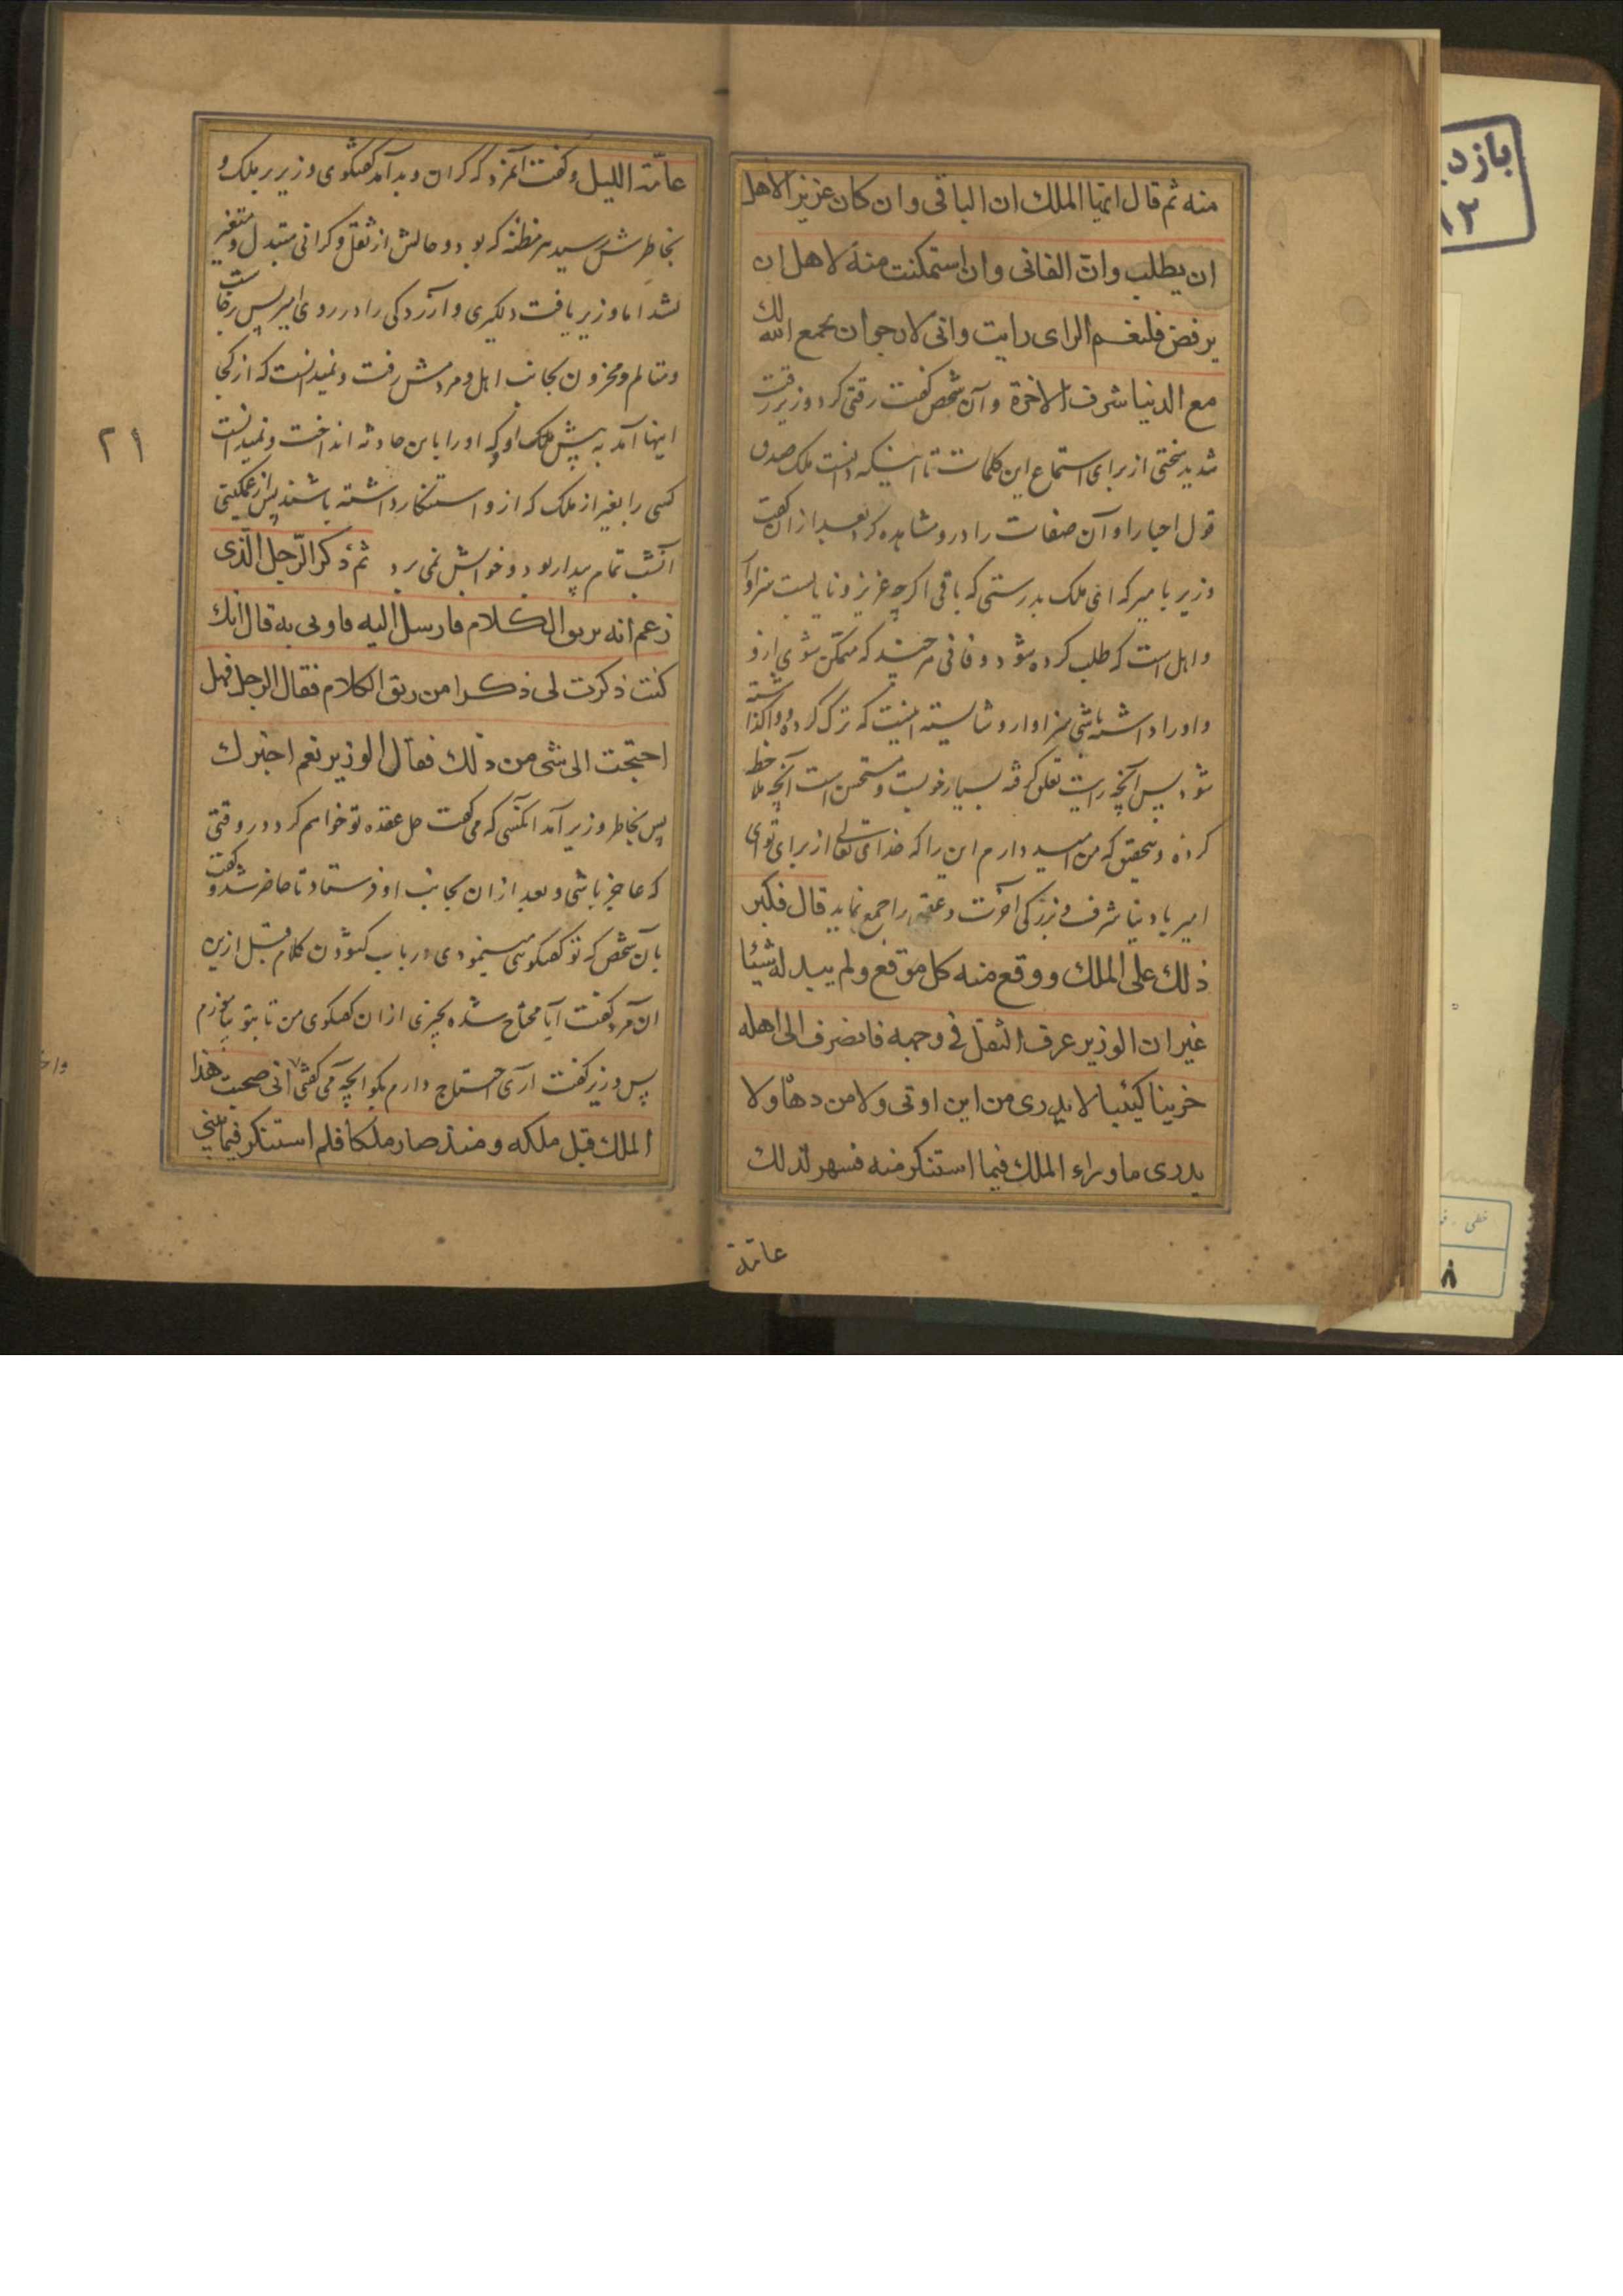 منه ثم قال ایها الملک ان الباقی وان کان عزیزا لاهل
ان یطلب وان الفانی وان استمکنت منه لاهل ان
یرفض فلنعم الرای رایت وانی لارجو ان یجمع الله لک
مع الدنیا شرف الاخرة وآن شخص گفت رقتی کرد وزیر رقت
شدید سختی از برای استماع این کلمات تا اینکه دانست ملک صدق
قول اجبار او آن صفات را درو مشاهده کرد بعد از ان گفت
وزیر با میر که ای ملک بدرستی که باقی اگرچه عزیز و نایابست سزاوار
و اهل است که طلب کرده شود و فانی هرچند که متمکن شوی ازو
واورا داشته باشی سزاوار و شایسته اینست که ترک کرده و واگذاشته
شود پس آنچه رایت تعلق گرفته بسیار خوبست و مستحسن است آنچه ملاحظه
کرده و بتحقیق که من امید دارم این را که خدای تعالی از برای تو ای
امیر با دنیا شرف و بزرگی آخرت و عقبی را جمع نماید قال فکبر
ذلک علی الملک ووقع منه کل موقع ولم یبد له شیئا
غیر ان الوزیر عرف الثقل فی وجهه فانصرف الی اهله
حزینا کئیبا لا یدری من این اوتی ولا من دهاه ولا
یدری ما وراء الملک فیما استنکر منه فسهر لذلک
عامة
عامة اللیل وگفت آنمرد که گران و بد آمد گفتگوی وزیر بر ملک و
بخاطرش رسید هر مظنه که بود و حالش از ثقل و گرانی متبدل و متغیر
نشد اما وزیر یافت دلگیری و آزردگی را در روی امیر پس برخاست
و متالم و محزون بجانب اهل و مردمش رفت و نمیدانست که از کجا
اینها آمد به پیش ملک او و که او را باین حادثه انداخت و نمیدانست
کسی را بغیر از ملک که ازو استنکار داشته باشند پس از غمگینی
آنشب تمام بیدار بود و خوابش نمی برد ثم ذکر الرجل الذی
زعم انه یرتق الکلام فارسل الیه فاوتی به قال انک
کنت ذکرت لی ذکرا من رتق الکلام فقال الرجل فهل
احتجت الی شی من ذلک فقال الوزیر نعم اخبرک
پس بخاطر وزیر آمد آنکسی که می گفت حل عقده تو خواهم کرد در وقتی
که عاجز باشی و بعد از ان بجانب او فرستاد تا حاضر شد و گفت
بآن شخص که تو گفتگوی مینمودی در باب گشودن کلام قبل ازین
ان مرد گفت آیا محتاج شده بچیزی از ان گفتگوی من تا بتو بیاموزم
پس وزیر گفت آری احتیاج دارم بگو آنچه می گفتی انی صحبت هذا
الملک قبل ملکه ومنذ صار ملکا فلم استنکر فیما بینی
۲۱
بازد
۱۲
خطی
۸